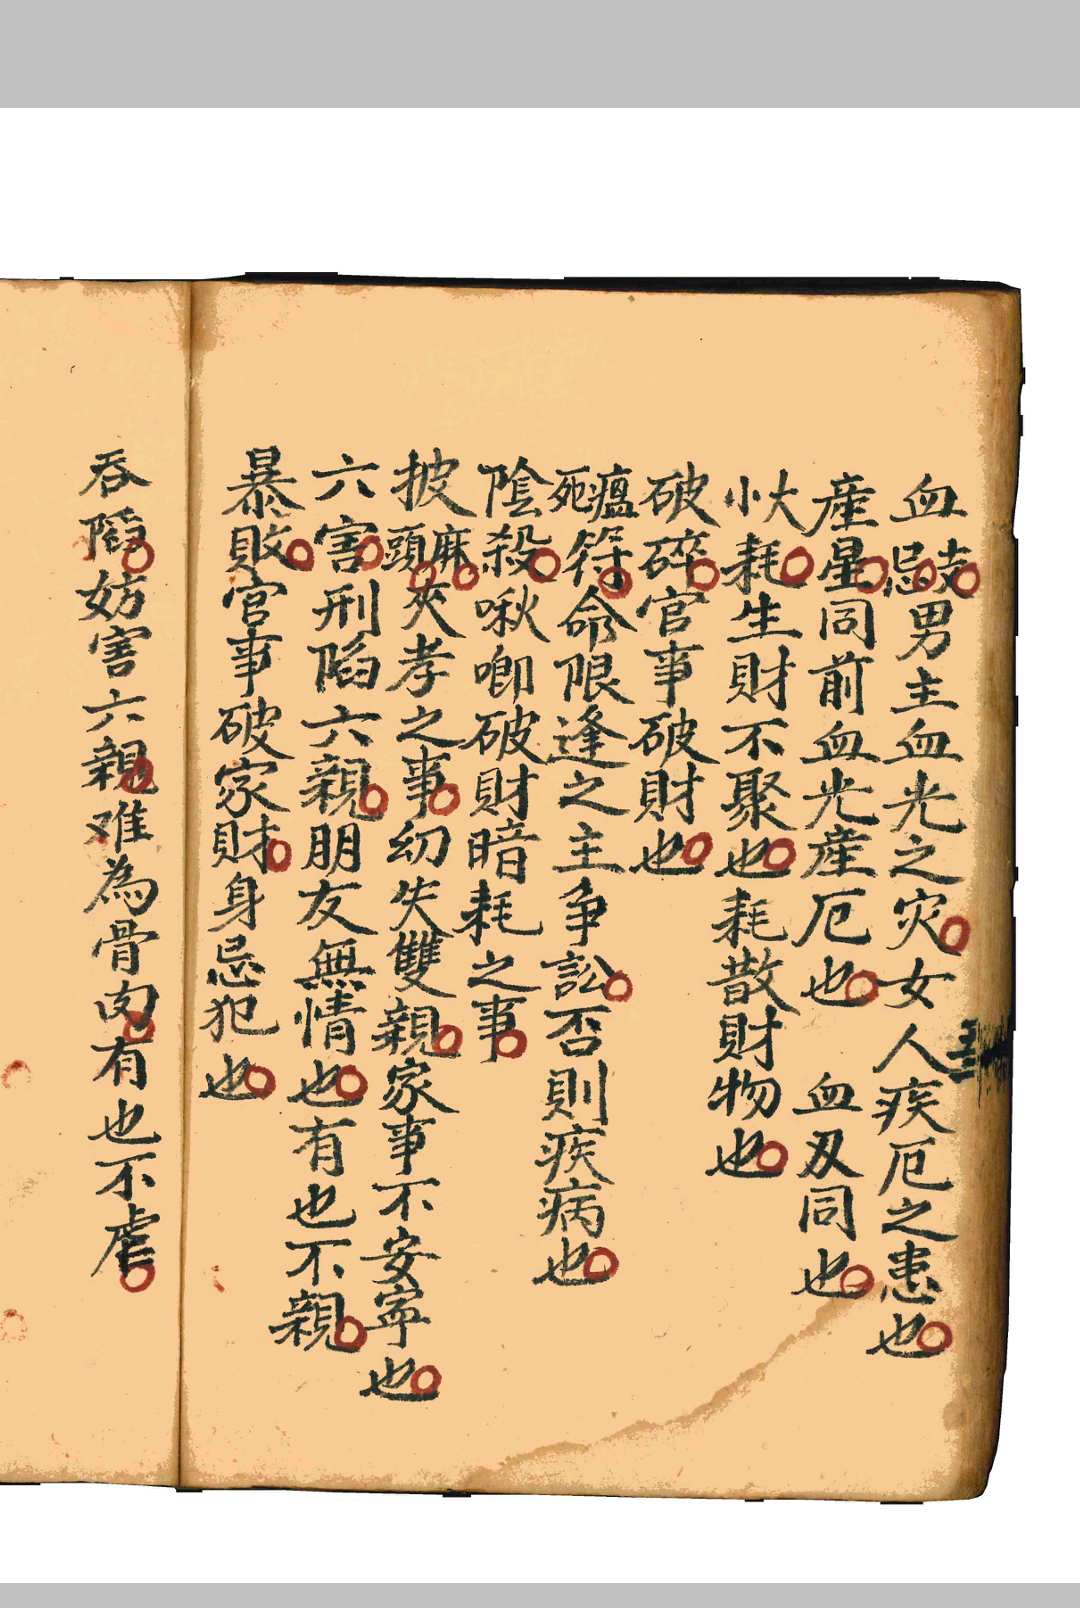 血支忌男主血光之灾女人疾厄之患也
産星同前血光産厄也 血刄同也
大小耗生財不聚也耗散財物也
破碎官事破財也
瘟死符命限逢之主争訟否則疾病也
陰殺啾唧破財暗耗之事
披麻頭夾孝之事幼失雙親家事不安寧也
六害刑陷六親朋友無情也有也不親
暴敗官事破家財身忌犯也
吞陷妨害六親难為骨肉有也不虐